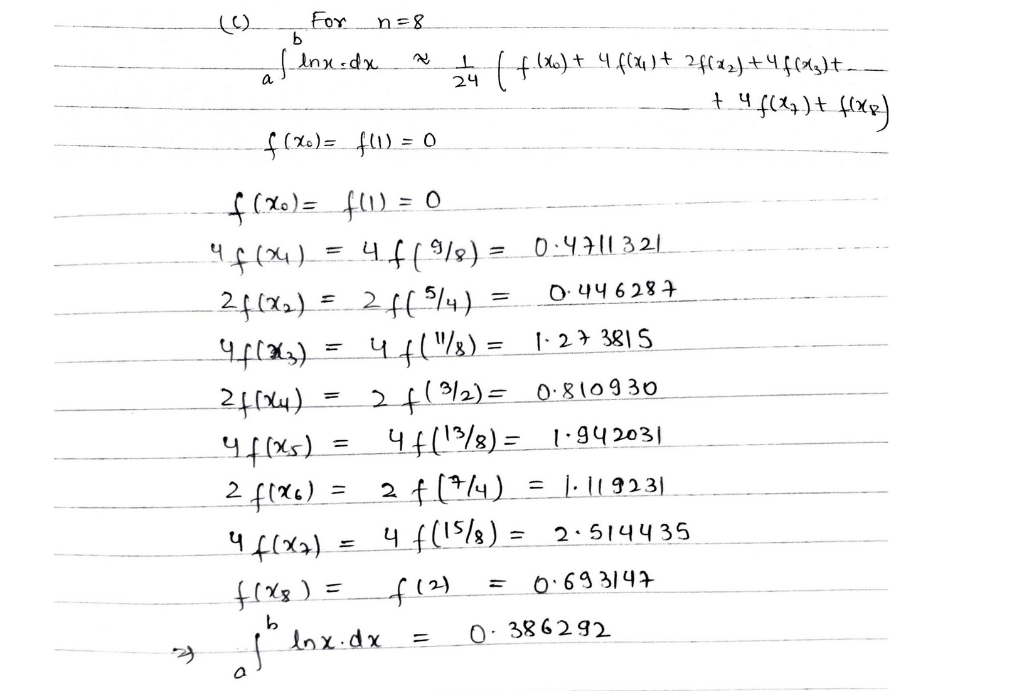 (C) For n=8
a∫b lnx.dx ≈ 1/24 ( f(x₀)+ 4f(x₁)+ 2f(x₂)+4f(x₃)+----
+ 4f(x₇)+ f(x₈)
f(x₀)= f(1) = 0
f(x₀)= f(1) = 0
4f(x₁) = 4f(9/8) = 0.4711321
2f(x₂) = 2f(5/4) = 0.446287
4f(x₃) = 4f(11/8) = 1.273815
2f(x₄) = 2f(3/2) = 0.810930
4f(x₅) = 4f(13/8) = 1.942031
2f(x₆) = 2f(7/4) = 1.119231
4f(x₇) = 4f(15/8) = 2.514435
f(x₈) = f(2) = 0.693147
⇒ a∫b lnx.dx = 0.386292